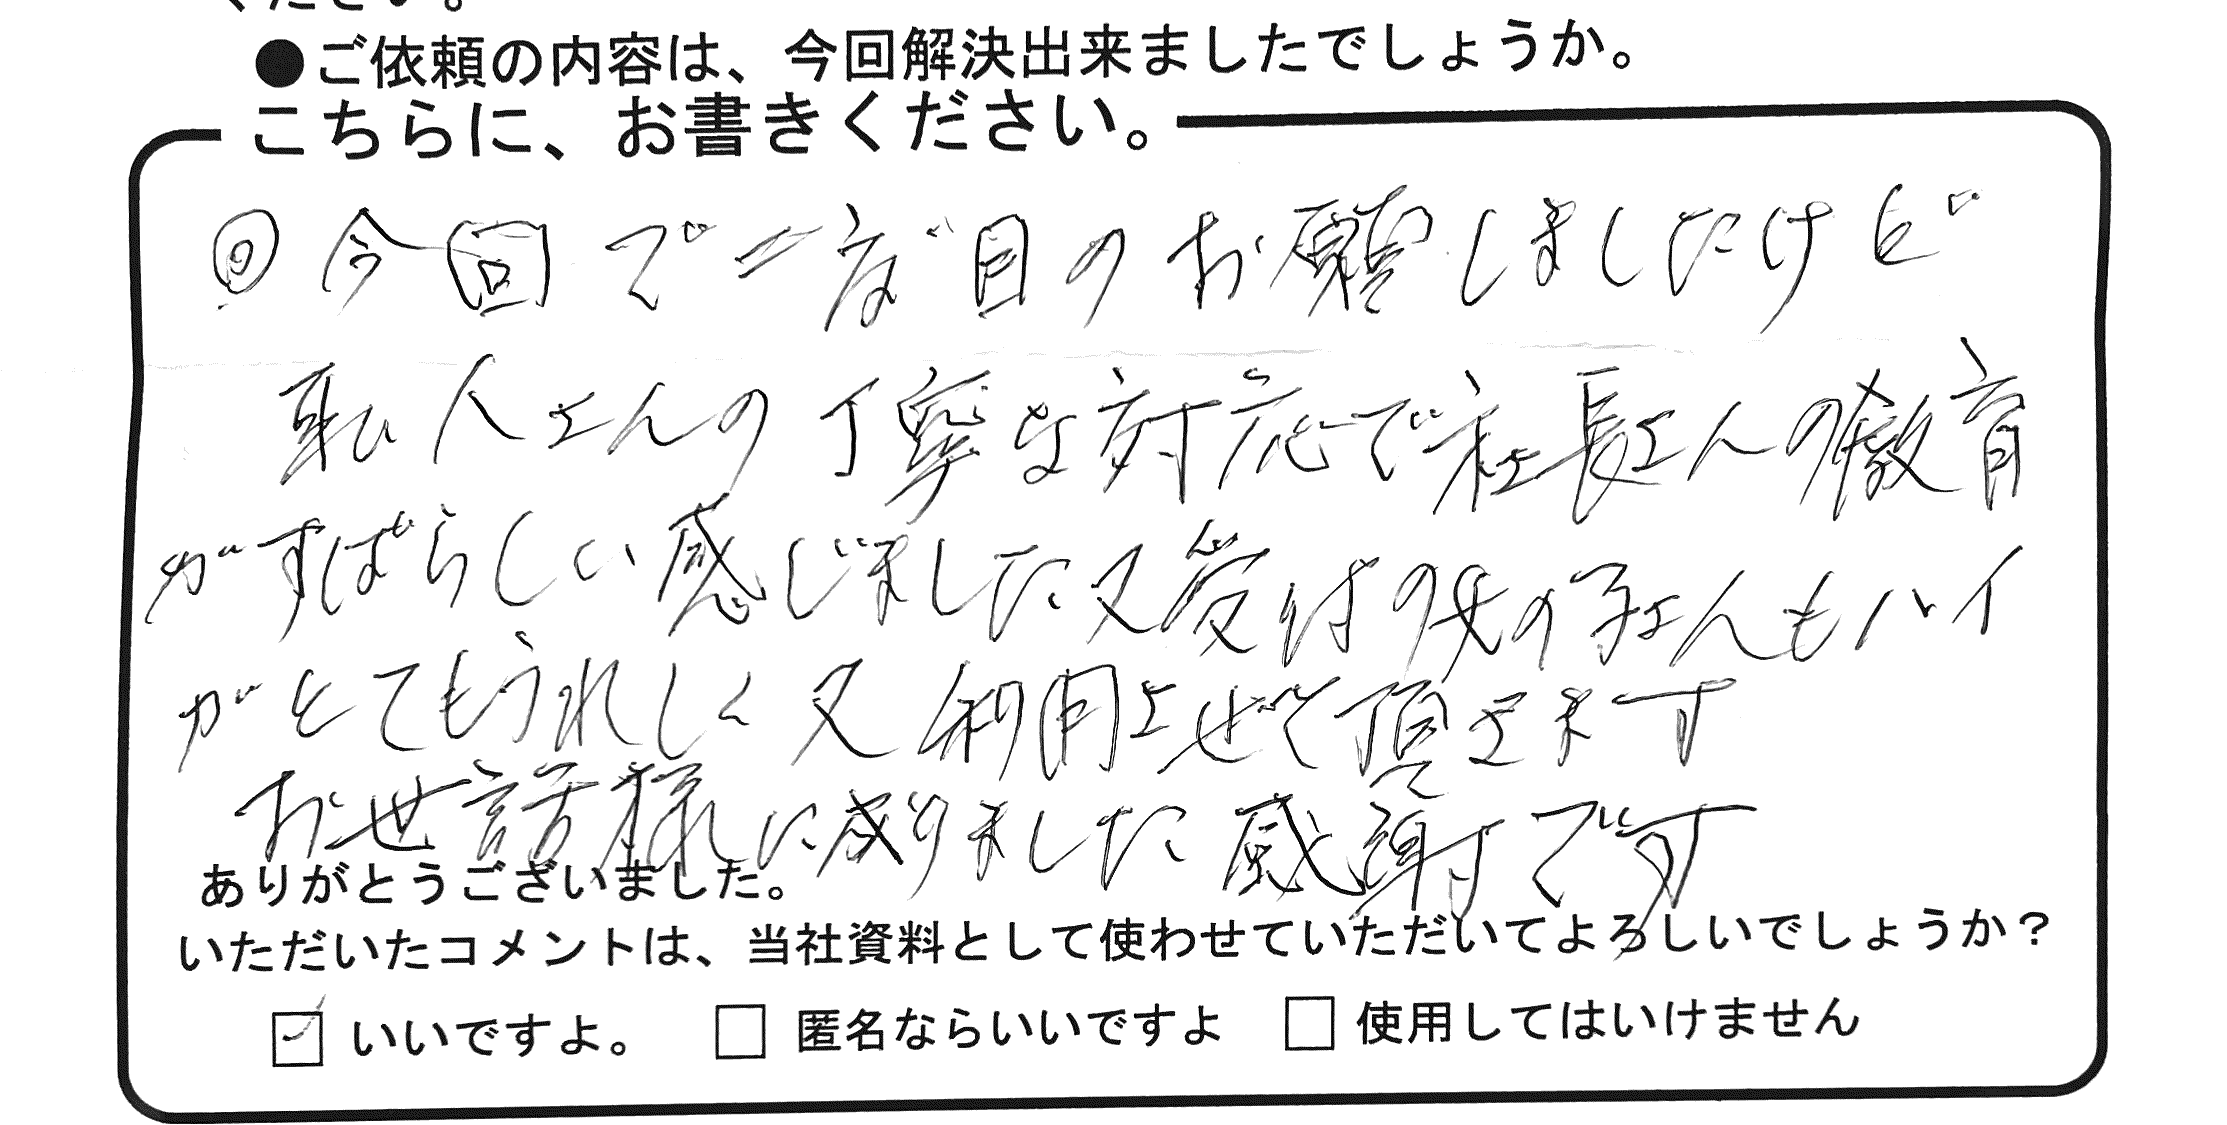 ください。
●ご依頼の内容は、今回解決出来ましたでしょうか。
こちらに、お書きください。
◎今回で二度目のお願しましたけど
職人さんの丁寧な対応で社長さんの教育
がすばらしい感じました又受付の女の子さんもハイ
がとてもうれしく又利用させて頂きます
お世話様に成りました感謝です
ありがとうございました。
いただいたコメントは、当社資料として使わせていただいてよろしいでしょうか?
☑ いいですよ。 □ 匿名ならいいですよ □ 使用してはいけません